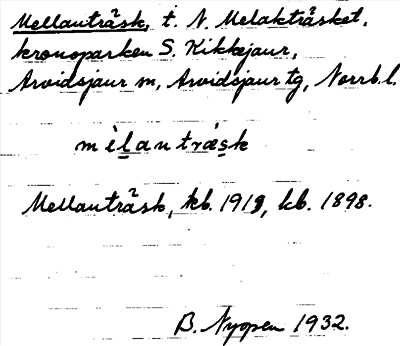 Mellanträsk, t. N. Melakträsket,
kronoparken S. Kikkejaur,
Arvidsjaur sn, Arvidsjaur tg, Norrb. l.
mèlantràsk
Mellanträsk, kb. 1919, kb. 1898.
B. Nyopen 1932.